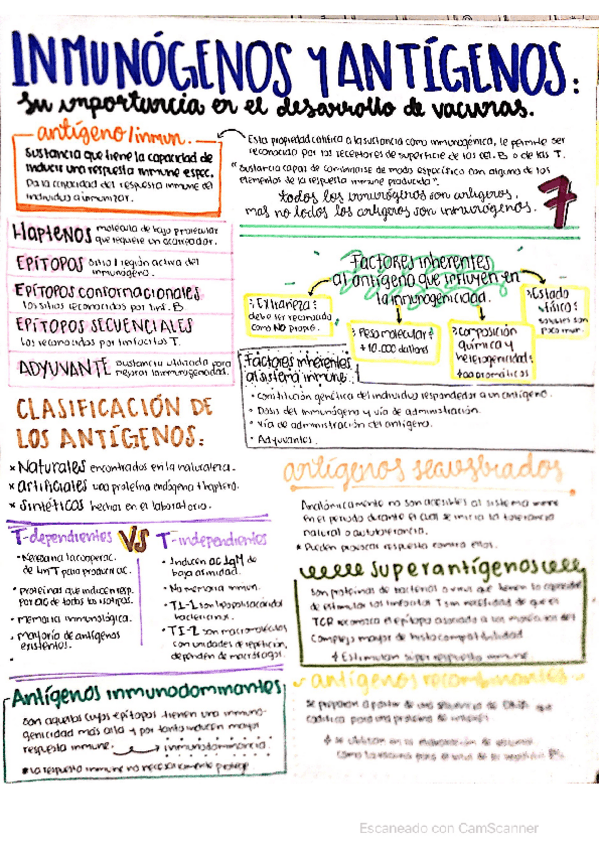 INMUNÓGENOS Y ANTÍGENOS:
su importancia en el desarrollo de vacunas.
antígeno/inmun.
Sustancia que tiene la capacidad de
inducir una respuesta inmune espec.
Da la capacidad del respuesta inmune del
individuo a inmunizar.
Esta propiedad califica a la sustancia como inmunogénica, le permite ser
reconocido por los receptores de superficie de las cel. B o de las T.
"Sustancia capaz de combinarse de modo específico con alguno de los
elementos de la respuesta inmune producida".
todos los inmunógenos son antígenos,
mas no todos los antígenos son inmunógenos.
7
Haptenos molécula de bajo peso molecular
que requiere un acarreador.
EPÍTOPOS Sitio o región activa del
inmunógeno.
EPÍTOPOS CONFORMACIONALES
Los sitios reconocidos por linf. B
EPÍTOPOS SECUENCIALES
Los reconocidos por linfocitos T.
ADYUVANTE Sustancia utilizada para
mejorar inmunogenicidad.
Factores inherentes
al antígeno que influyen en
la inmunogenicidad.
1. Extrañeza:
debe ser reconocido
como NO propio.
2. Peso molecular:
+10.000 daltons
3. Composición
química y
heterogenicidad:
+aa aromáticos
Estado
físico:
solubles son
poco inmun.
Factores inherentes
al sistema inmune.
• Constitución genética del individuo respondedor a un antígeno.
• Dosis del inmunógeno y vía de administración.
• Vía de administración del antígeno.
• Adyuvantes.
CLASIFICACIÓN DE
LOS ANTÍGENOS:
× Naturales encontrados en la naturaleza.
× artificiales una proteína endógena + hapteno.
× sintéticos hechos en el laboratorio.
T-dependientes VS T-independientes
• Necesaria la cooperac.
de linf T para producir ac.
• Proteínas que inducen resp.
por ac de todos los isotipos.
• Memoria inmunológica.
• Mayoría de antígenos
existentes.
• Inducen ac IgM de
baja afinidad.
• No memoria inmun.
• TI-1 son lipopolisacáridos
bacterianos.
• TI-2 son macromoléculas
con unidades de repetición,
dependen de macrófagos.
antígenos secuestrados
Anatómicamente no son accesibles al sistema inmune
en el periodo durante el cual se inicia la tolerancia
natural o autotolerancia.
* Pueden provocar respuesta contra ellos.
superantígenos
Son proteínas de bacterias o virus que tienen la capacidad
de estimular los linfocitos T sin necesidad de que el
TCR reconozca el epítopo asociado a las moléculas del
Complejo mayor de histocompatibilidad
Estimulan súper respuesta inmune
Antígenos inmunodominantes
Son aquellos cuyos epítopos tienen una inmuno-
genicidad más alta y por tanto inducen mayor
respuesta inmune. → inmunodominancia.
* la respuesta inmune no necesariamente protege
antígenos recombinantes
Se preparan a partir de una secuencia de que
codifica para una proteína de interés
se utilizan en la elaboración de vacunas
como la vacuna para el virus de la hepatitis
Escaneado con CamScanner